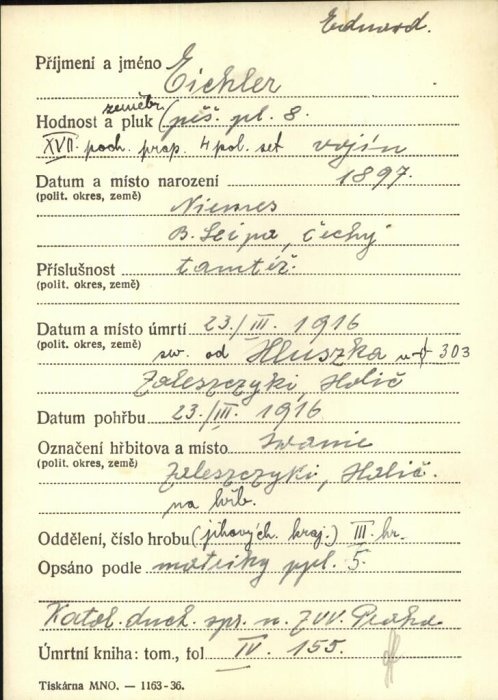 Eduard.
Příjmení a jméno Eichler
zeměbr.
Hodnost a pluk (pěš. pl. 8.
XVII. poch. prap. 4 pol. set vojín
Datum a místo narození 1897.
(polit. okres, země)
Niemes
B. Leipa, Čechy
Příslušnost tamtéž.
(polit. okres, země)
Datum a místo úmrtí 23./III. 1916
(polit. okres, země) sw. od Hluszka 303
Zaleszczyki, Halič
Datum pohřbu 23./III. 1916
Označení hřbitova a místo Iwanie
(polit. okres, země)
Zaleszczyki, Halič.
na hřb.
Oddělení, číslo hrobu (jihových. kraj.) III. hr.
Opsáno podle matriky ppl. 5.
Katol. duch. spr. u. ZVV. Praha.
Úmrtní kniha: tom., fol IV. 155.
Tiskárna MNO. — 1163-36.